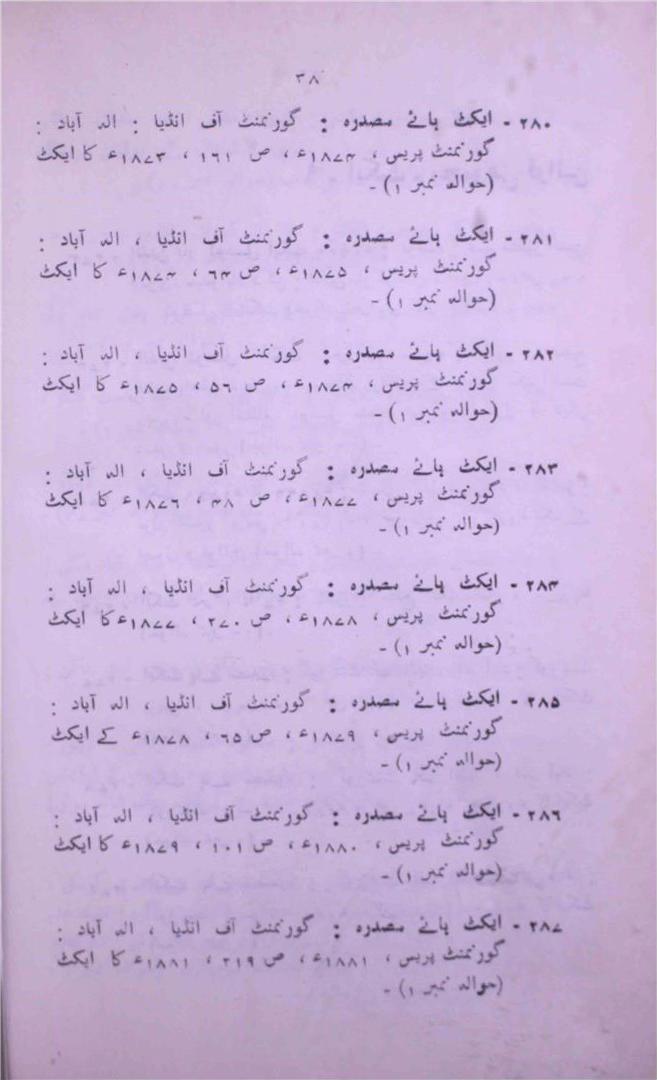 ۳۸
۲۸۰ - ایکٹ ہائے مصدرہ : گورنمنٹ آف انڈیا : الہ آباد :
گورنمنٹ پریس ، ۱۸۷۴ء ، ص ۱۶۱ ، ۱۸۷۳ء کا ایکٹ
(حوالہ نمبر ۱) -
۲۸۱ - ایکٹ ہائے مصدرہ : گورنمنٹ آف انڈیا ، الہ آباد :
گورنمنٹ پریس ، ۱۸۷۵ء ، ص ۶۴ ، ۱۸۷۴ء کا ایکٹ
(حوالہ نمبر ۱) -
۲۸۲ - ایکٹ ہائے مصدرہ : گورنمنٹ آف انڈیا ، الہ آباد :
گورنمنٹ پریس ، ۱۸۷۴ء ، ص ۵۶ ، ۱۸۷۵ء کا ایکٹ
(حوالہ نمبر ۱) -
۲۸۳ - ایکٹ ہائے مصدرہ : گورنمنٹ آف انڈیا ، الہ آباد :
گورنمنٹ پریس ، ۱۸۷۷ء ، ص ۴۸ ، ۱۸۷۶ء کا ایکٹ
(حوالہ نمبر ۱) -
۲۸۴ - ایکٹ ہائے مصدرہ : گورنمنٹ آف انڈیا ، الہ آباد :
گورنمنٹ پریس ، ۱۸۷۸ء ، ص ۲۷۰ ، ۱۸۷۷ء کا ایکٹ
(حوالہ نمبر ۱) -
۲۸۵ - ایکٹ ہائے مصدرہ : گورنمنٹ آف انڈیا ، الہ آباد :
گورنمنٹ پریس ، ۱۸۷۹ء ، ص ۶۵ ، ۱۸۷۸ء کے ایکٹ
(حوالہ نمبر ۱) -
۲۸۶ - ایکٹ ہائے مصدرہ : گورنمنٹ آف انڈیا ، الہ آباد :
گورنمنٹ پریس ، ۱۸۸۰ء ، ص ۱۰۱ ، ۱۸۷۹ء کا ایکٹ
(حوالہ نمبر ۱) -
۲۸۷ - ایکٹ ہائے مصدرہ : گورنمنٹ آف انڈیا ، الہ آباد :
گورنمنٹ پریس ، ۱۸۸۱ء ، ص ۲۱۹ ، ۱۸۸۱ء کا ایکٹ
(حوالہ نمبر ۱) -